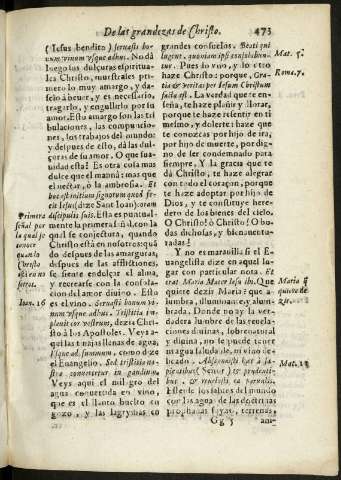 De las grandezas de Christo. 473
(Iesus bendito) seruasti bo-
num vinum vsque adhuc. No dà
luego los dulçores espiritua-
les Christo, muestrales pri-
mero lo muy amargo, y da-
selo à beuer, y es necessario,
tragarlo, y engullirlo por su
amor. Esto amargo son las tri-
bulaciones, las compuncio-
nes, los trabajos del mundo
y despues de esto, dà las dul-
çuras de su amor. O que sua-
uidad esta! Es otra cosa mas
dulce que el mannà: mas que
el nectar, ò la ambrosia. Et
hoc est initium signorum quod fe-
cit Iesus (dize San Iuan) coram
discipulis suis. Esta es puntual-
mente la primera señal, con la
qual se conjectura, quando
Christo està en nosotros: quã
do despues de las amarguras,
despues de las aflicciones,
se siente endulçar el alma,
y recrearse con la consola-
cion del amor diuino. Esto
es el vino. Seruasti bonum vi-
num vsque adhuc. Tristitia im-
pleuit cor vestrum, dezia Chri-
sto à los Apostoles. Veys a-
qui las tinajas llenas de agua,
Vsque ad summum, como dize
el Euangelio. Sed tristitia ves-
tra conuertetur in gaudium.
Veys aqui el milagro del
agua conuertida en vino,
que es el llanto buelto en
gozo, y las lagrymas en
Primera
señal por
la qual se
conoce
quando
Christo
està en no
sotros.
Ioan. 16
grandes consuelos. Beati qui
lugent, quoniam ipsi consolabun-
tur. Pues lo vno, y lo otro
haze Christo: porque, Gra-
tia & veritas per Iesum Christum
facta est. La verdad que te en-
seña, te haze plañir, y llorar,
porque te haze resentir en ti
mesmo, y dolerte: haze que
te conozcas por hijo de ira,
por hijo de muerte, por dig-
no de ser condemnado para
siempre. Y la gracia que te
dà Christo, te haze alegrar
con todo el coraçon, porque
te haze adoptar por hijo de
Dios, y te constituye here-
dero de los bienes del cielo.
O Christo! ò Christo! O bo-
das dichosas, y bienauentu-
radas!
Y no es marauilla si el E-
uangelista dize en aquel lu-
gar con particular nota. Et
erat Maria Mater Iesu ibi. Que
quiere dezir Maria? que a-
lumbra, illuminante, y alum-
brada. Donde no ay la ver-
dadera lumbre de las reuela-
ciones diuinas, sobrenatura-
les,
y diuina, no se puede tener
Abscondisti hæc à sa-
pientibus (Señor) & prudenti-
bus, & reuelasti ea paruulis.
Mat. 5.
Roma. 7.
Maria q̃
quiere de-
zir.
Mat. 11
Gg 5 an-